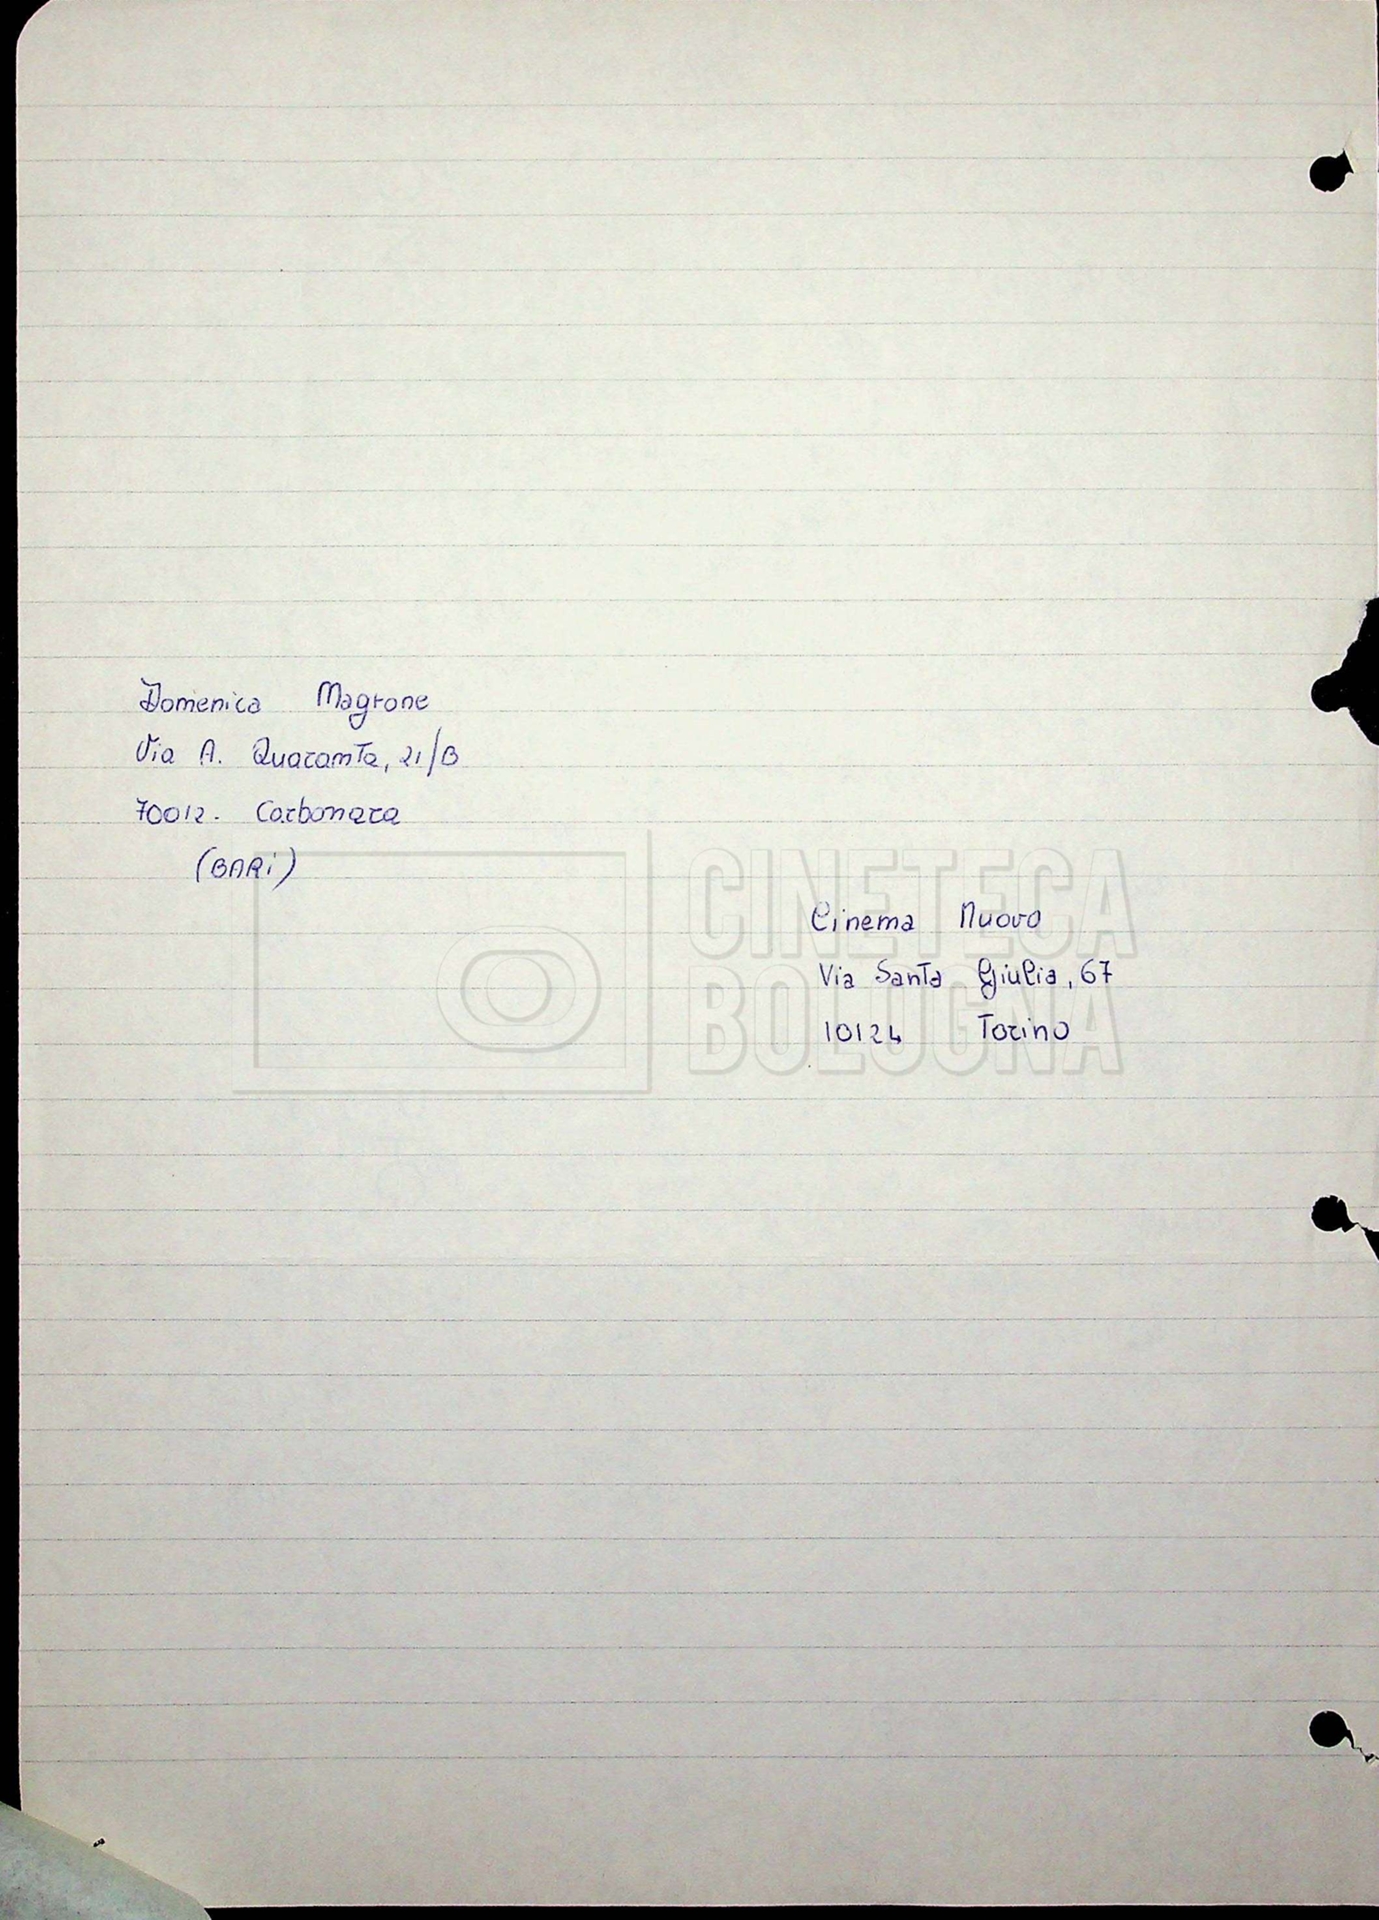 Domenica Magrone
Via A. Quaranta, 21/B
70012. Carbonara
(BARi)
Cinema Nuovo
Via Santa Giulia, 67
10124 Torino
CINETECA
BOLOGNA